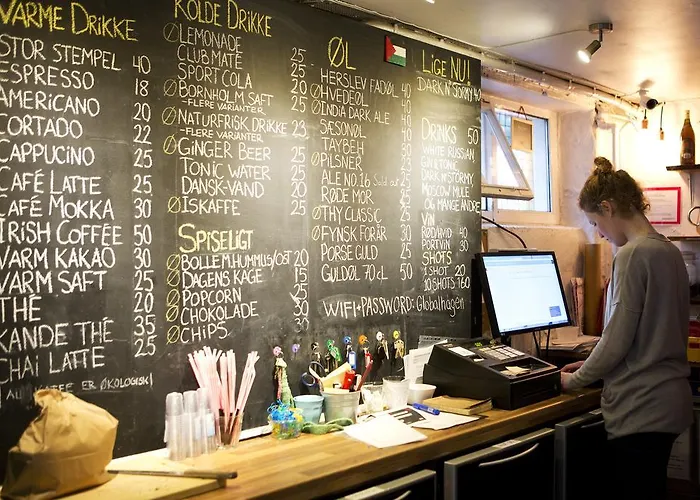 VARME DRIKKE
STOR STEMPEL 40
ESPRESSO 18
AMERICANO 20
CORTADO 22
CAPPUCINO 25
CAFÉ LATTE 25
CAFÉ MOKKA 30
IRISH COFFEE 50
VARM KAKAO 30
VARM SAFT 25
THÉ 20
KANDE THÉ 35
CHAI LATTE 25
ER ØKOLOGISK!
KOLDE DRIKKE
Ø LEMONADE 25
CLUB MATÉ 25
SPORT COLA 25
Ø BORNHOLM SAFT 25
-FLERE VARIANTER
Ø NATURFRISK DRIKKE 23
-FLERE VARIANTER
Ø GINGER BEER 25
TONIC WATER 25
DANSK-VAND 20
Ø ISKAFFE 25
SPISELIGT
Ø BOLLE M. HUMMUS/OST 20
Ø DAGENS KAGE 15
Ø POPCORN
Ø CHOKOLADE 30
Ø CHIPS 30
ØL
HERSLEV FADØL 40
Ø HVEDEØL 40
Ø INDIA DARK ALE 40
SÆSONØL
TAYBEH
Ø PILSNER
ALE NO.16 Sold out
RØDE MOR
Ø THY CLASSIC 25
Ø FYNSK FORÅR 30
PORSE GULD 25
GULDØL 70 CL 50
WIFI+PASSWORD: Globalhagen
LIGE NU!
DARK N' STORMY 40
DRINKS 50
WHITE RUSSIAN
GIN & TONIC
DARK N' STORMY
MOSCOW MULE
OG MANGE ANDRE
VIN
RØD/HVID 40
PORTVIN 30
SHOTS
1 SHOT 20
10 SHOTS 160